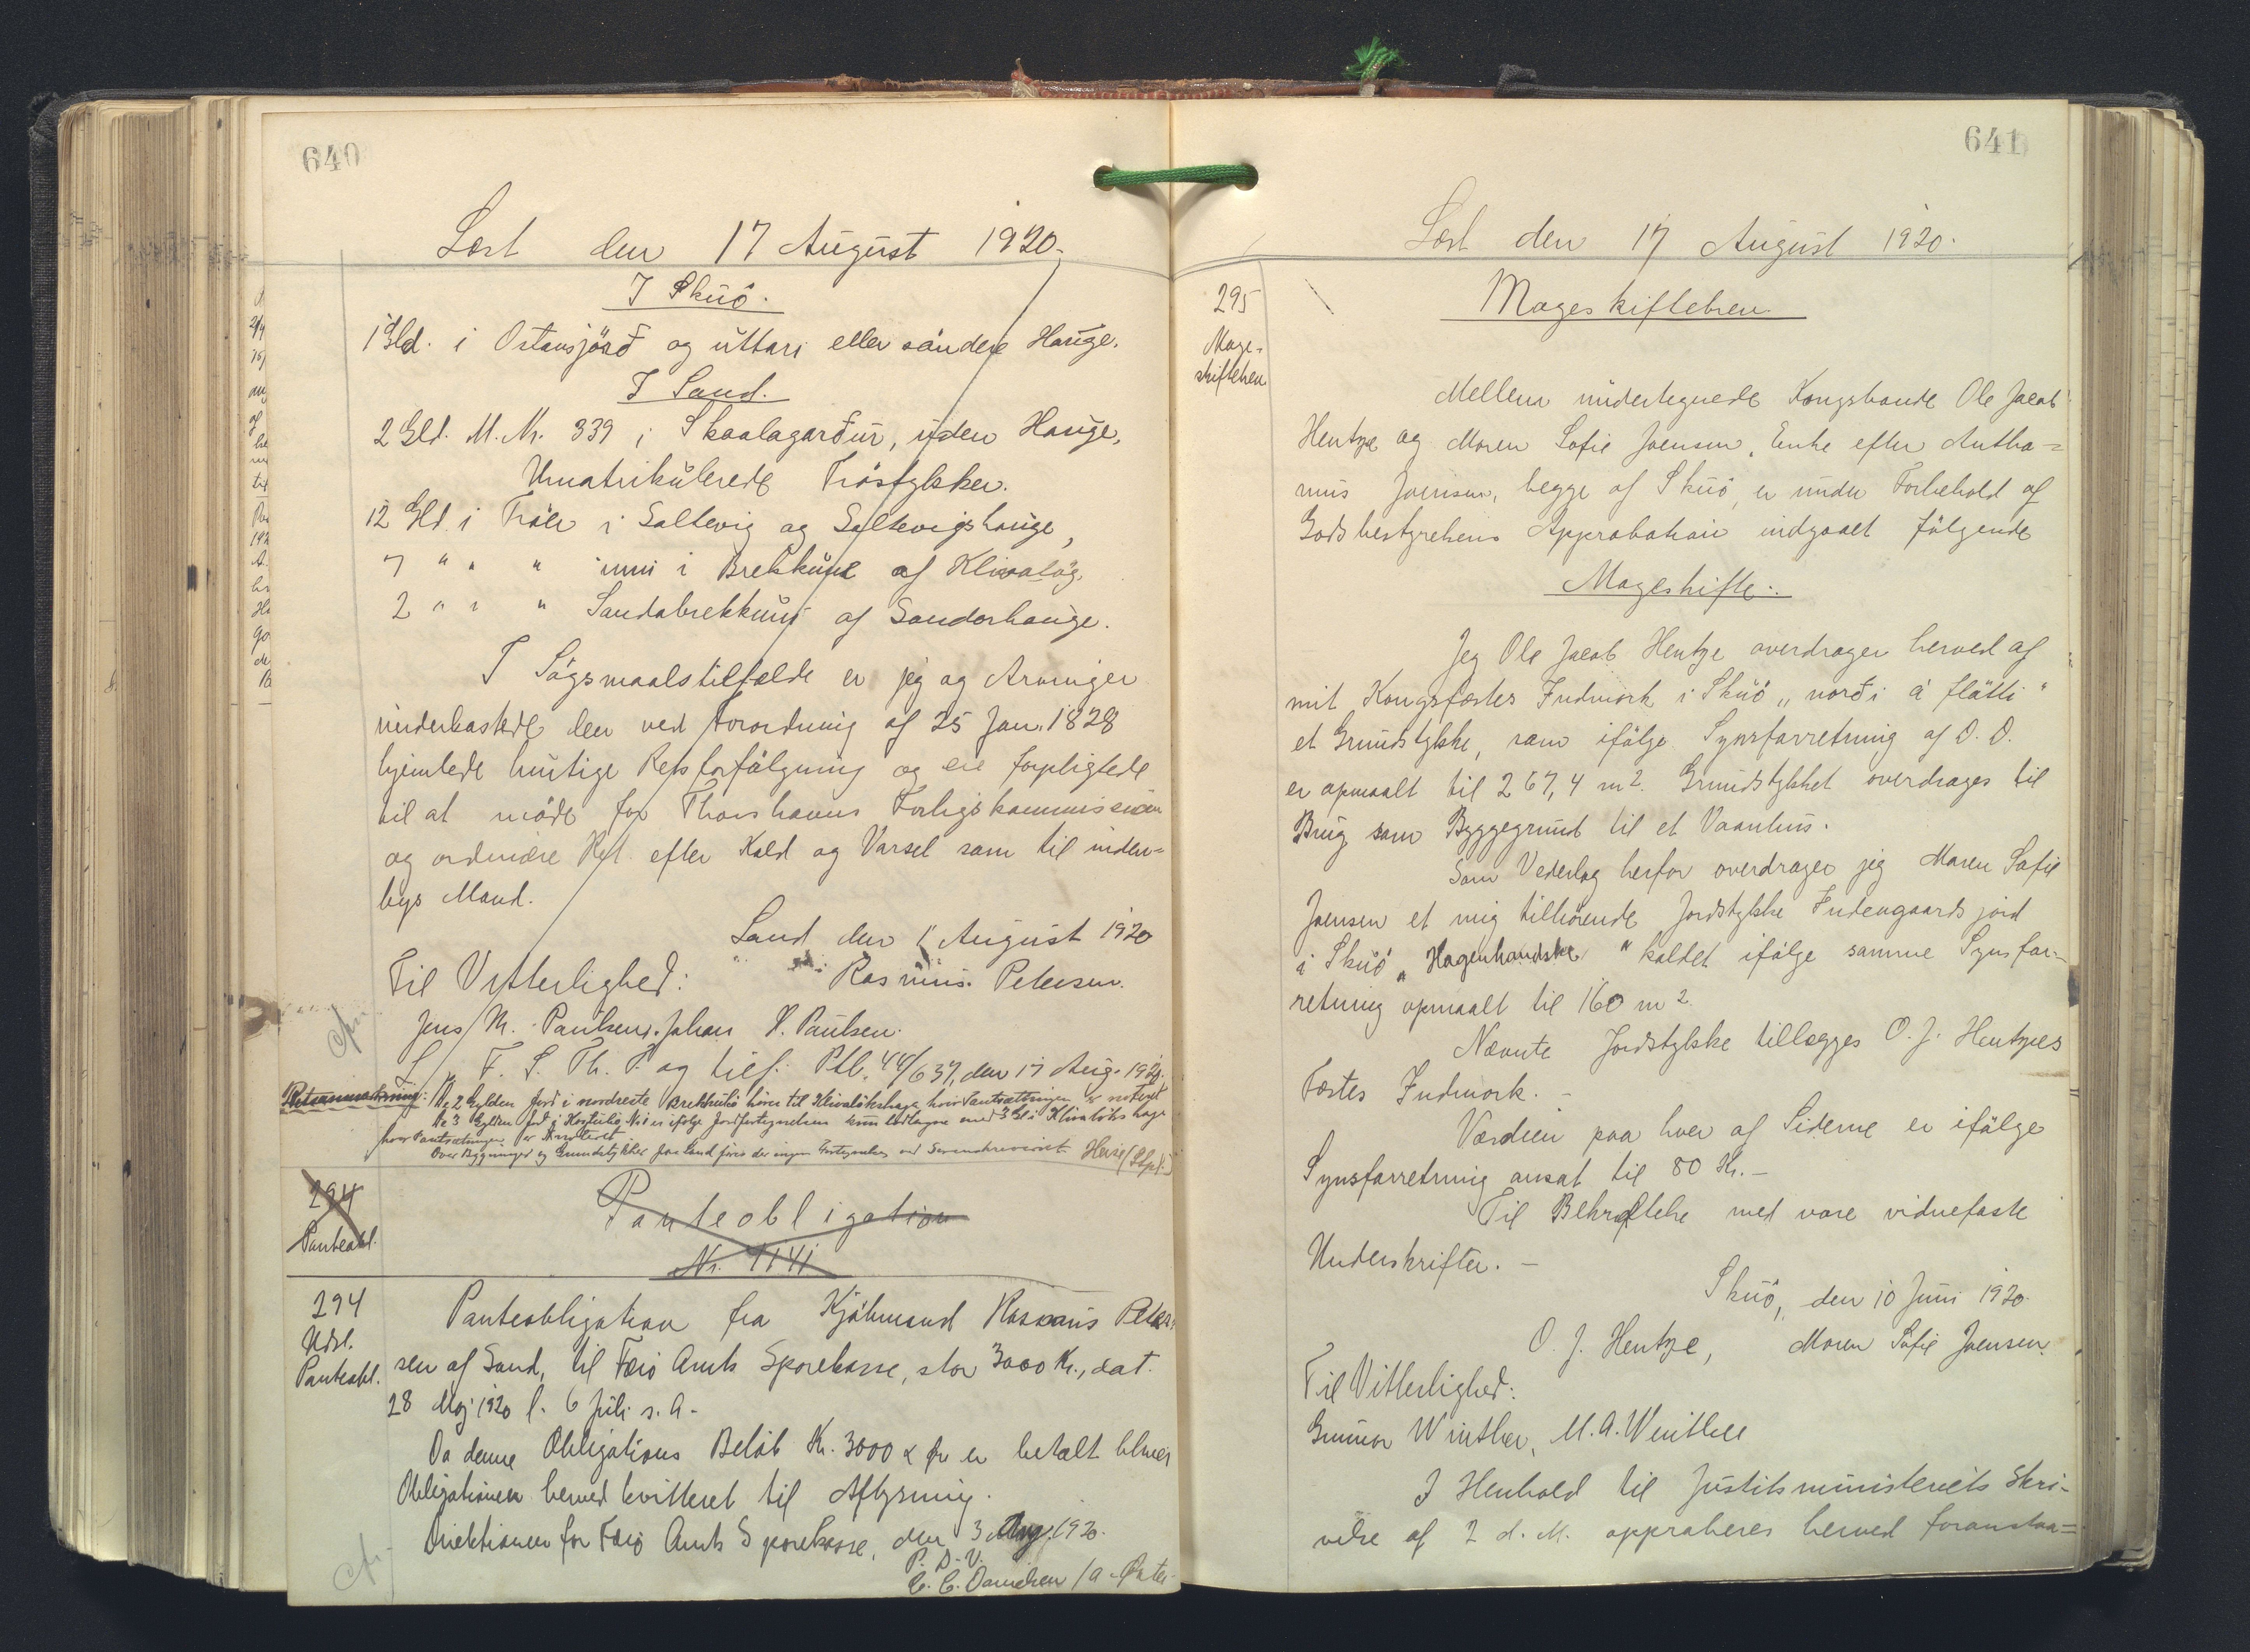 640
Læst den 17 August 1920.
I Skuö.
1 Gld. i Ostansjörd og uttari eller söndere Hauge.
I Sand.
2 Gld. M. Nr. 339 i Skaalagarður, uden Hauge,
Umatrikulerede Tröstykker.
12 Gld. i Tröer i Saltevig og Saltevigshauge,
7 " " " inni i Brekkune af Klivalög.
2 " " " Sandabrekkuni af Sondorhauge.
I Sögsmaalstilfælde er jeg og Arvinger
underkastede den ved Forordning af 25 Jan. 1828
hjemlede hurtige Retsforfölgning og ere forpligtede
til at möde for Thorshavns Forligskommission
og ordinære Ret efter Kald og Varsel som til inden=
bys Mand.
Sand den 1' August 1920
Til Vitterlighed: Rasmus Petersen.
Jens M. Paulsen. Johan P. Paulsen.
L. T. S. Th. P. og tilf. Ptb. 44/637, den 17 Aug. 1920.
Retsanmærkning: De 2 Gylden Jord i nordreste Brekkuhö hører til Klivalökshage hvor Pantsætningen er noteret
De 3 Gylden Jord i er ifølge Jordfortegnelsen kun lodtagne med 3 Gl i Klivaløks hage
hvor Pantsætningen er noteret
Over Bygninger og Grundstykker paa Sand føres der ingen Fortegnelse ved Sorenskriveriet. Heise (Stpl.)
294
Panteobl.
Panteobligation
Nr. 1141
294
Udsl.
Panteobl.
Panteobligation fra Kjöbmand Rasmus Peter-
sen af Sand, til Færö Amts Sparekasse, stor 3000 Kr., dat.
28 Maj 1920 l. 6 Juli s. A.
Da denne Obligations Belöb Kr. 3000 er betalt bliver
Obligationen herved kvitteret til Aflysning.
Direktionen for Færö Amts Sparekasse, den 3 Aug. 1920.
P. D. V.
C. C. Danielsen /
641
Læst den 17 August 1920.
295
Mage-
skiftebrev
Mageskiftebrev
Mellem undertegnede Kongsbonde Ole Jacob
Hentze og Maren Sofie Joensen, Enke efter Hutha=
nius Joensen, begge af Skuö er under Forbehold af
Godsbestyrelsens Approbation indgaaet fölgende
Mageskifte:
Jeg Ole Jacob Hentze overdrager herved af
mit Kongsfæstes Indmark i Skuö "norði á fløtti"
et Grundstykke, som ifölge Synsforretning af D. D.
er opmaalt til 267,4 m2. Grundstykket overdrages til
Brug som Byggegrund til et Vaanhus.
Som Vederlag herfor overdrager jeg Maren Sofie
Joensen et mig tilhörende Jordstykke Indengaards jord
i Skuö "Hagenhandske" kaldet ifölge samme Synsfor-
retning opmaalt til 160 m2.
Nævnte Jordstykke tillægges O. J. Hentzes
Fæstes Indmark. -
Værdien paa hver af Siderne er ifölge
Synsforretning ansat til 80 Kr. -
Til Bekræftelse med vore vidnefaste
Underskrifter. -
Skuö, den 10 Juni 1920.
O. J. Hentze, Maren Sofie Joensen.
Til Vitterlighed:
Gunnar Winther, M. A. Winther
I Henhold til Justitsministeriets Skri-
velse af 2 d. M. approberes herved foranstaa=